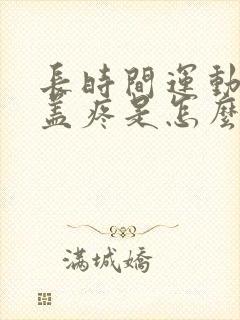 長時間運動
盖疼是怎麼
滿城嬌